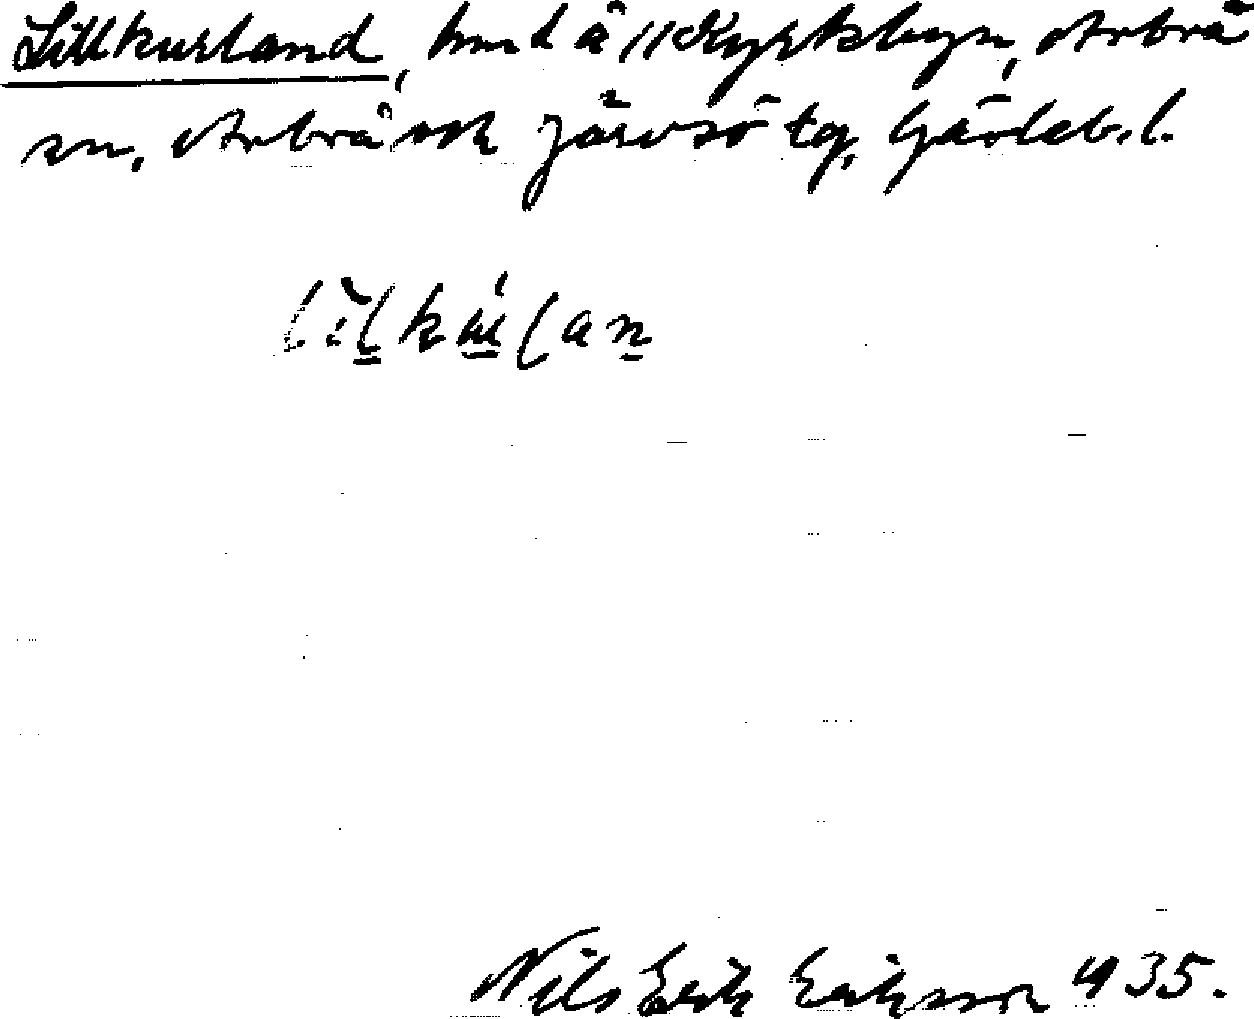 Lillkurland, hmd å Kyrkbyn, Arbrå
sn, Arbrå och Järvsö tg, Gävleb. l.
Nils Erik Eriksson 1935.